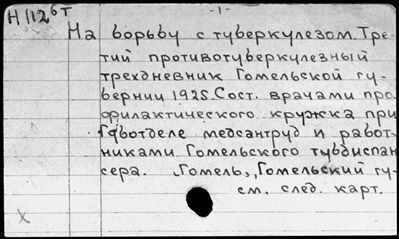 Н 1126т
-1-
На борьбу с туберкулезом. Тре-
тий противотуберкулезный
трехдневник Гомельской гу-
бернии 1925. Сост. врачами про
филактического кружка при
Губотделе медсантруд и работ-
никами Гомельского тубдиспан
сера. Гомель, "Гомельский гу-
см. след. карт.
X